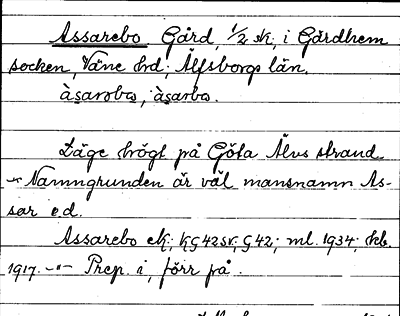 Assarebo Gård, 1/2 sk; i Gärdhem
socken, Väne hd; Älfsborgs län.
àsarəbω, àsarbω.
Läge högt på Göta Älvs strand.
-"- Namngrunden är väl mansnamn As-
sar e.d.
Assarebo ek; KG 42 sv, G 42; ml. 1934; kb.
1917. -"- Prep. i, förr på.